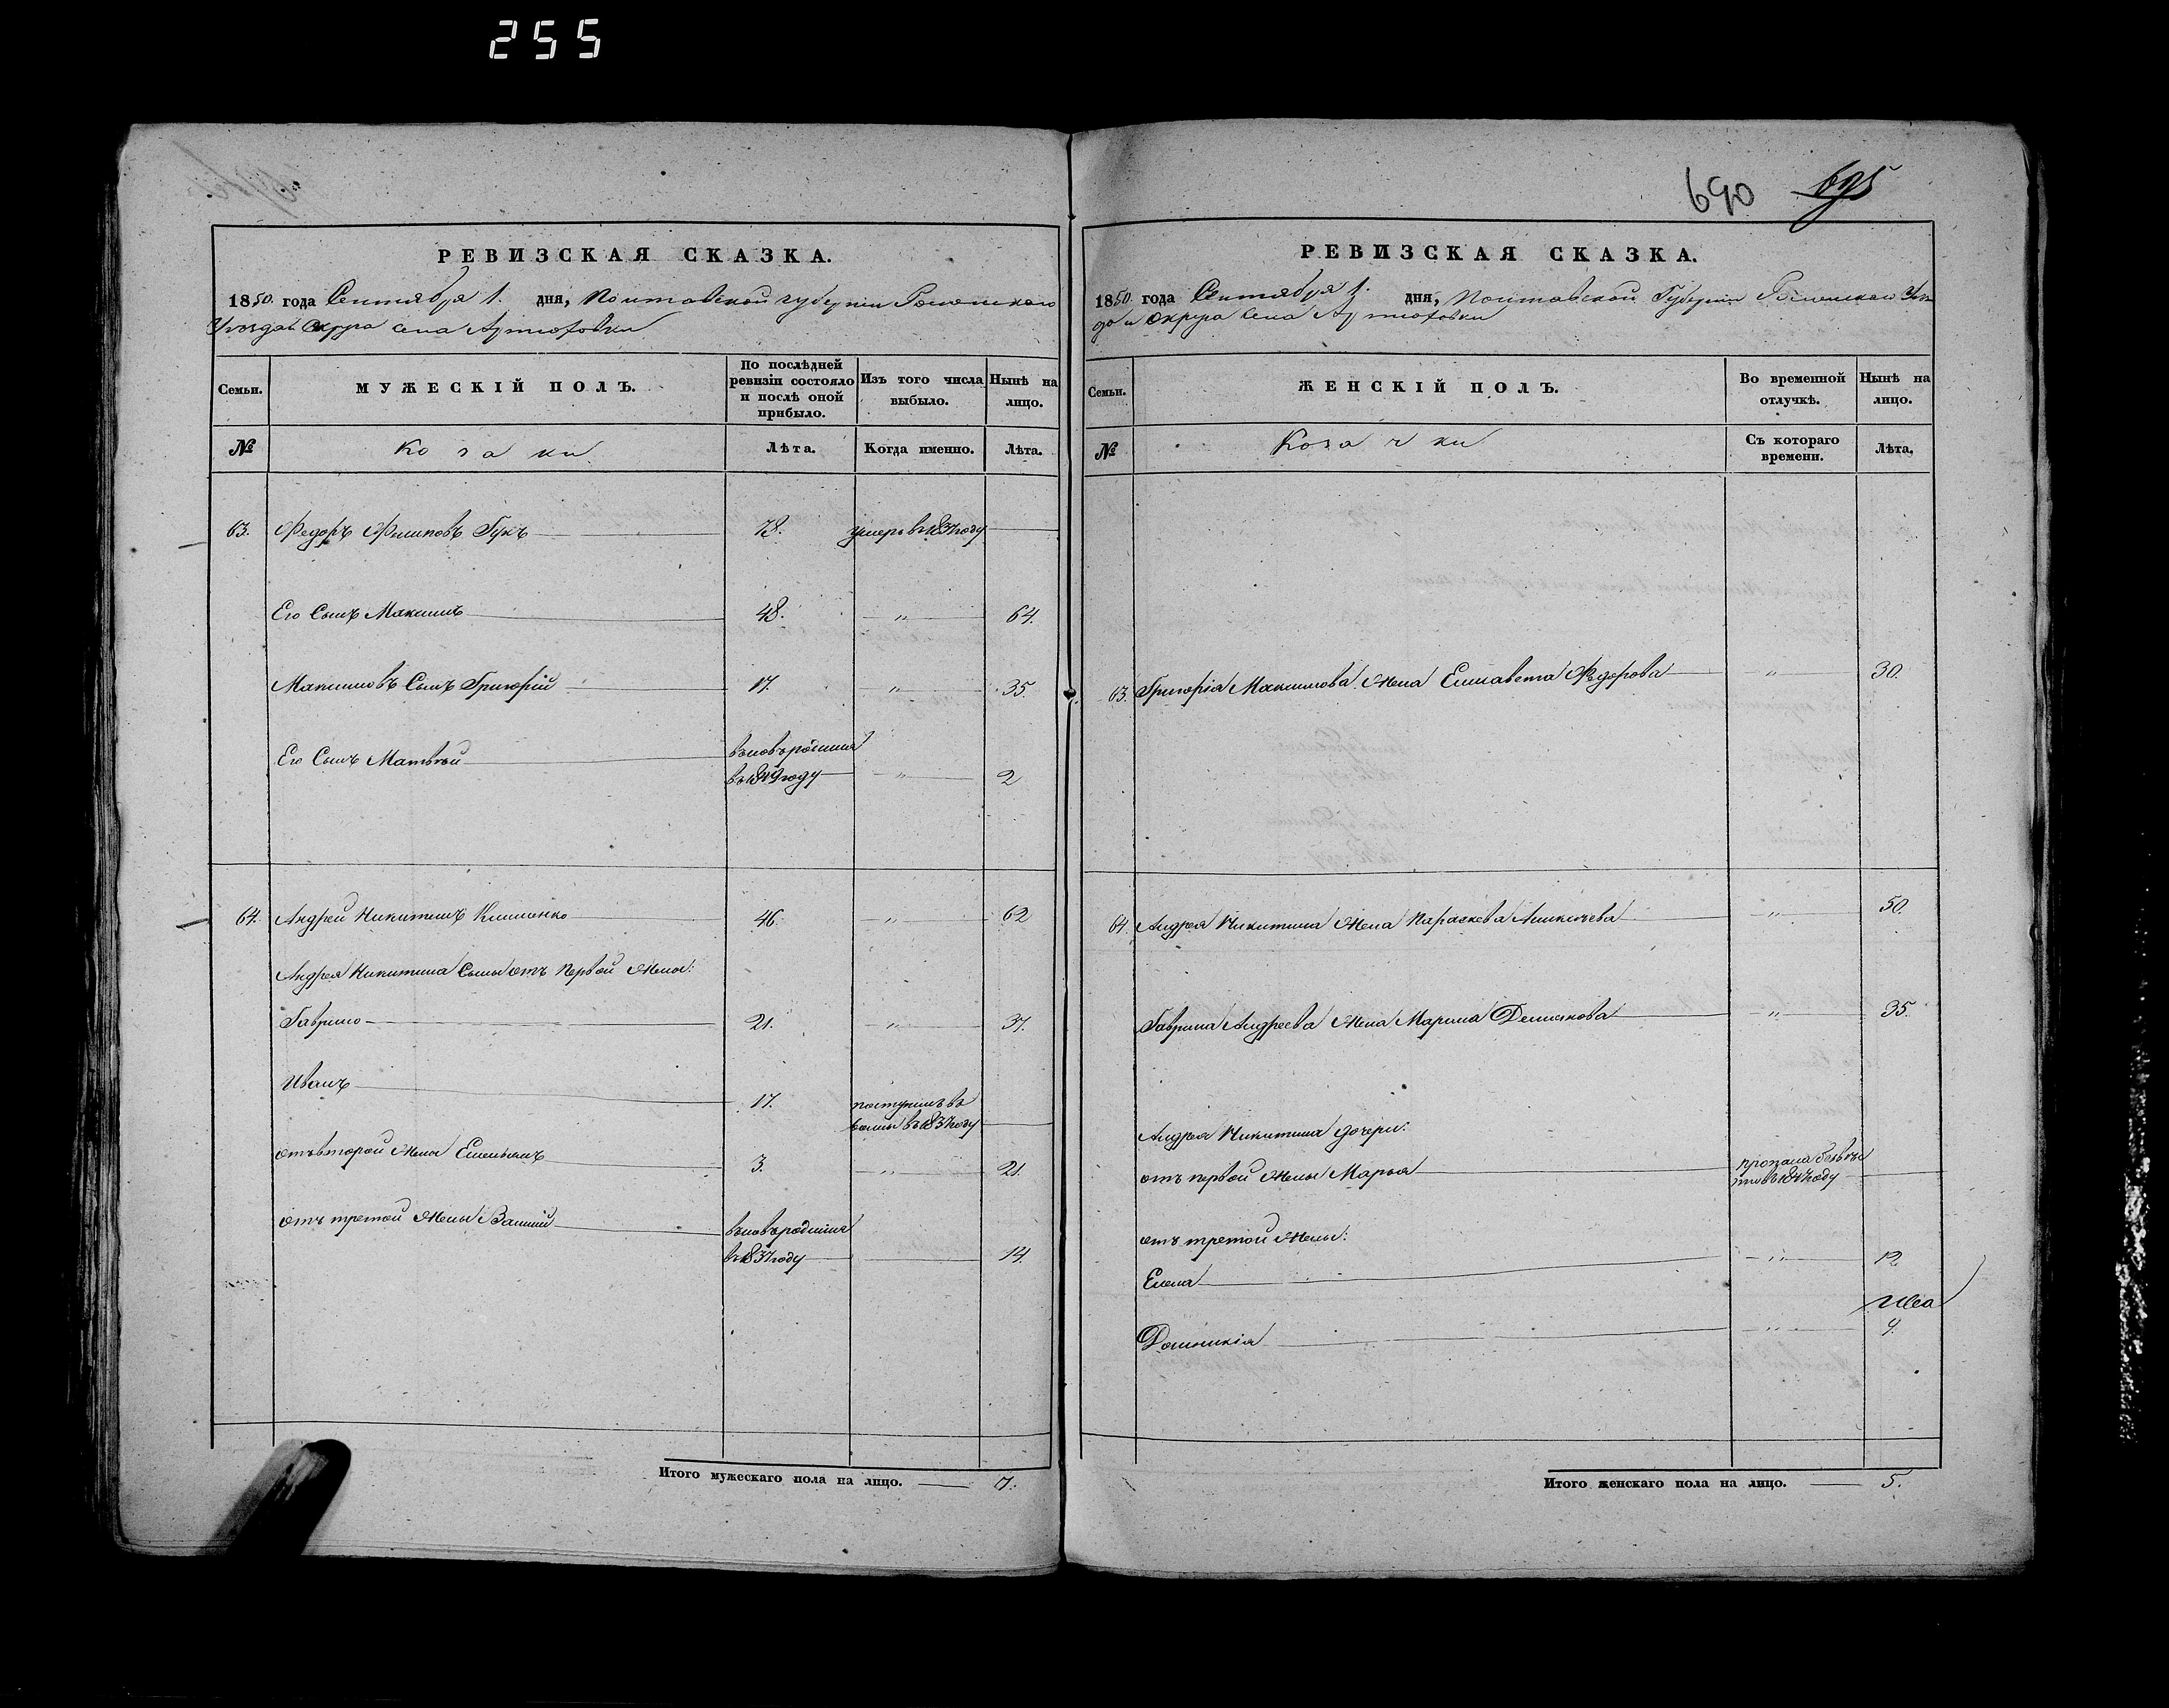 255
690 695
РЕВИЗСКАЯ СКАЗКА.
1850. года Сентября 1. дня, Полтавской губерніи Роменскаго
Уезда и Округа села Артюховки
Семьи.
МУЖЕСКІЙ ПОЛЪ.
По послѣдней ревизіи состояло и послѣ оной прибыло.
Изъ того числа выбыло.
Нынѣ на лицо.
№
Козаки
Лѣта.
Когда именно.
Лѣта.
63. Федоръ Филиповъ Гукъ 78. умеръ в 1837 году
Его Сынъ Максимъ 48. " 64.
Максимовъ Сынъ Григорій 17. " 35.
Его Сынъ Матвѣй вновь рожденъ
въ 1849 году " 2
64. Андрей Никитинъ Клименко 46. " 62
Андрея Никитина Сыны отъ первой жены:
Гаврило 21. " 37.
Иванъ 17. поступилъ въ
въ 1837 году
отъ второй жены Емельянъ 3. " 21.
отъ третой жены Василій вновь родился
въ 1837 году 14.
Итого мужескаго пола на лицо. 7.
РЕВИЗСКАЯ СКАЗКА.
1850. года Сентября 1. дня, Полтавской Губерніи Роменскаго Уез
да и округа села Артюховки
Семьи.
ЖЕНСКІЙ ПОЛЪ.
Во временной отлучкѣ.
Нынѣ на лицо.
№
Козачки
Съ котораго времени.
Лѣта.
63. Григорія Максимова жена Елисавета Федорова " 30.
64. Андрея Никитина жена Параскева " 50.
Гаврила Андреева жена Марина Демянова " 35.
Андрея Никитина дочери:
отъ первой жены Марья пропала безвѣс
тно въ 1847 году
отъ третой жены:
Елена " 12
Домникія " 9.
Итого женскаго пола на лицо. 5.